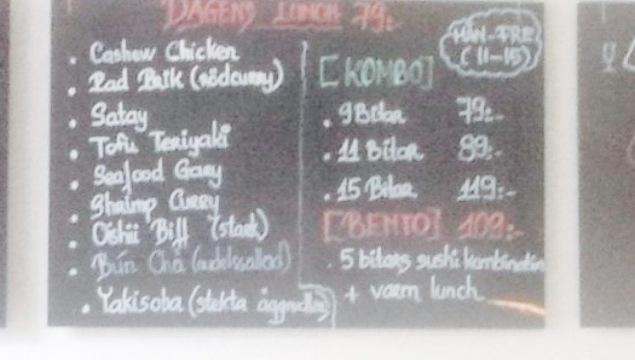 DAGENS LUNCH 79:-
MÅN-FRE
(11-15)
• Cashew Chicken
• Pad Prik (rödcurry)
• Satay
• Tofu Teriyaki
• Seafood Curry
• Shrimp Curry
• Oishii Biff (stark)
• Bún Chả (nudelsallad)
• Yakisoba (stekta äggnudlar)
[KOMBO]
• 9 Bitar 79:-
• 11 Bitar 89:-
• 15 Bitar 119:-
[BENTO] 109:-
• 5 bitars sushi kombination
+ varm lunch